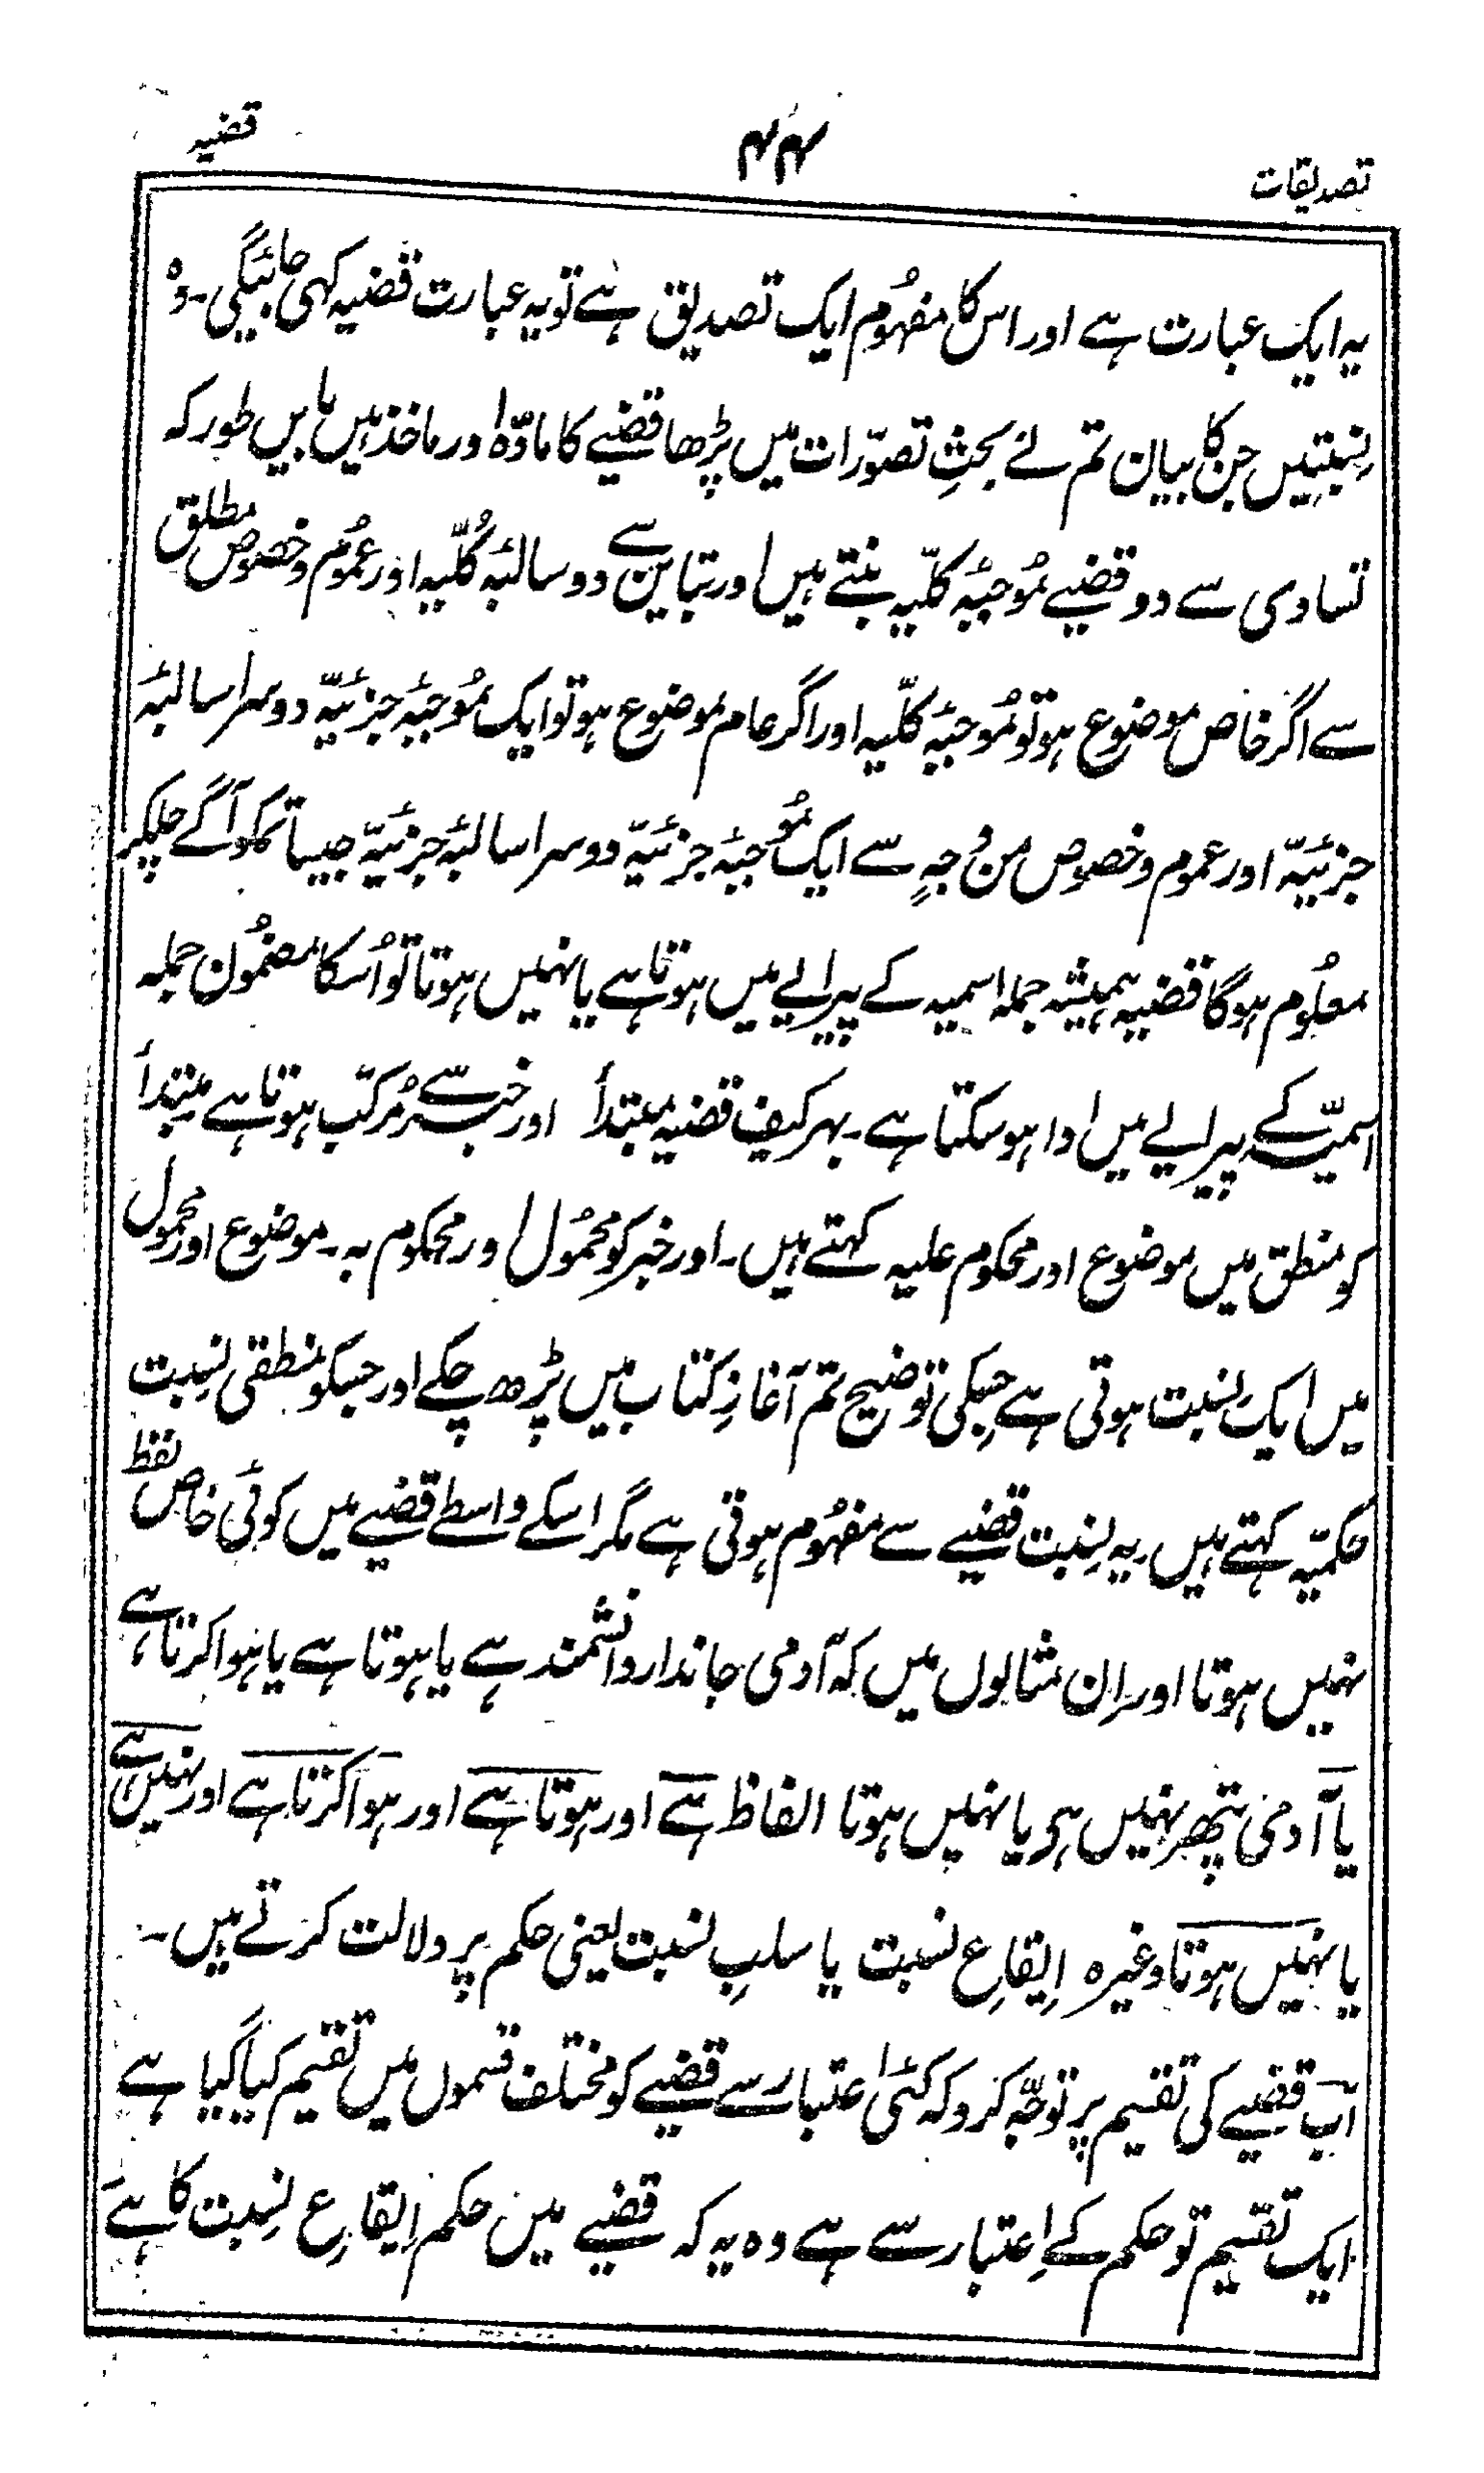 تصدیقات
۴۴
قضیہ
یہ ایک عبارت ہے اور اس کا مفہُوم ایک تصدیق ہے تو یہ عبارت قضیہ کہی جائیگی۔ وہ
نِسبتیں جن کا بیان تم نے بحثِ تصوّرات میں پڑھا قضیے کا مادّہ اور ماخذ ہیں بایں طور کہ
تساوی سے دو قضیے مُوجبۂ کلّیہ بنتے ہیں اور تباین سے دو سالبۂ کُلّیہ اور عمُوم وخصوص مطلق
سے اگر خاص موضوع ہو تو مُوجبۂ کلّیہ اور اگر عام موضوع ہو تو ایک مُوجبۂ جزئیّہ دوسرا سالبۂ
جزئیّہ اور عموم وخصوص من وُجہٍ سے ایک مُوجبۂ جزئیّہ دوسرا سالبۂ جزئیّہ جیسا تمکو آگے چلکر
معلُوم ہوگا قضیہ ہمیشہ جملہ اسمیہ کے پیرایے میں ہوتا ہے یا نہیں ہوتا تو اُسکا مضمُون جملہ
اسمیّہ کے پیرایے میں ادا ہو سکتا ہے۔ بہر کیف قضیہ مبتدأ اور خبر سے مُرکّب ہوتا ہے مبتدأ
کو منطق میں موضوع اور محکوم علیہ کہتے ہیں۔ اور خبر کو محمُول اور محکوم بہ۔ موضوع اور محمول
میں ایک نسبت ہوتی ہے جِسکی توضیح تم آغازِ کتاب میں پڑھ چکے اور جسکو منطقی نِسبت
حکمیّہ کہتے ہیں۔ یہ نِسبت قضیے سے مفہُوم ہوتی ہے مگر اسکے واسطے قضیے میں کوئی خاص لفظ
نہیں ہوتا اور اِن مثالوں میں کہ آدمی جاندار دانشمند ہے یا ہوتا ہے یا ہوا کرتا ہے
یا آدمی پتھر نہیں ہی یا نہیں ہوتا الفاظ ہے اور ہوتا ہے اور ہوا کرتا ہے اور نہیں ہے
یا نہیں ہوتا وغیرہ اِیقاعِ نسبت یا سلبِ نسبت یعنی حکم پر دلالت کرتے ہیں۔
اب قضیے کی تقسیم پر توجّہ کرو کہ کئی اعتبار سے قضیے کو مختلف قسموں میں تقسیم کیا گیا ہے
ایک تقسیم تو حکم کے اِعتبار سے ہے وہ یہ کہ قضیے میں حکم اِیقاعِ نِسبت کا ہے